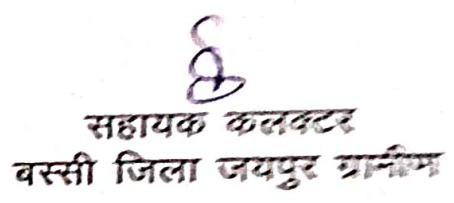 सहायक कलक्टर
बस्सी जिला जयपुर ग्रामीण